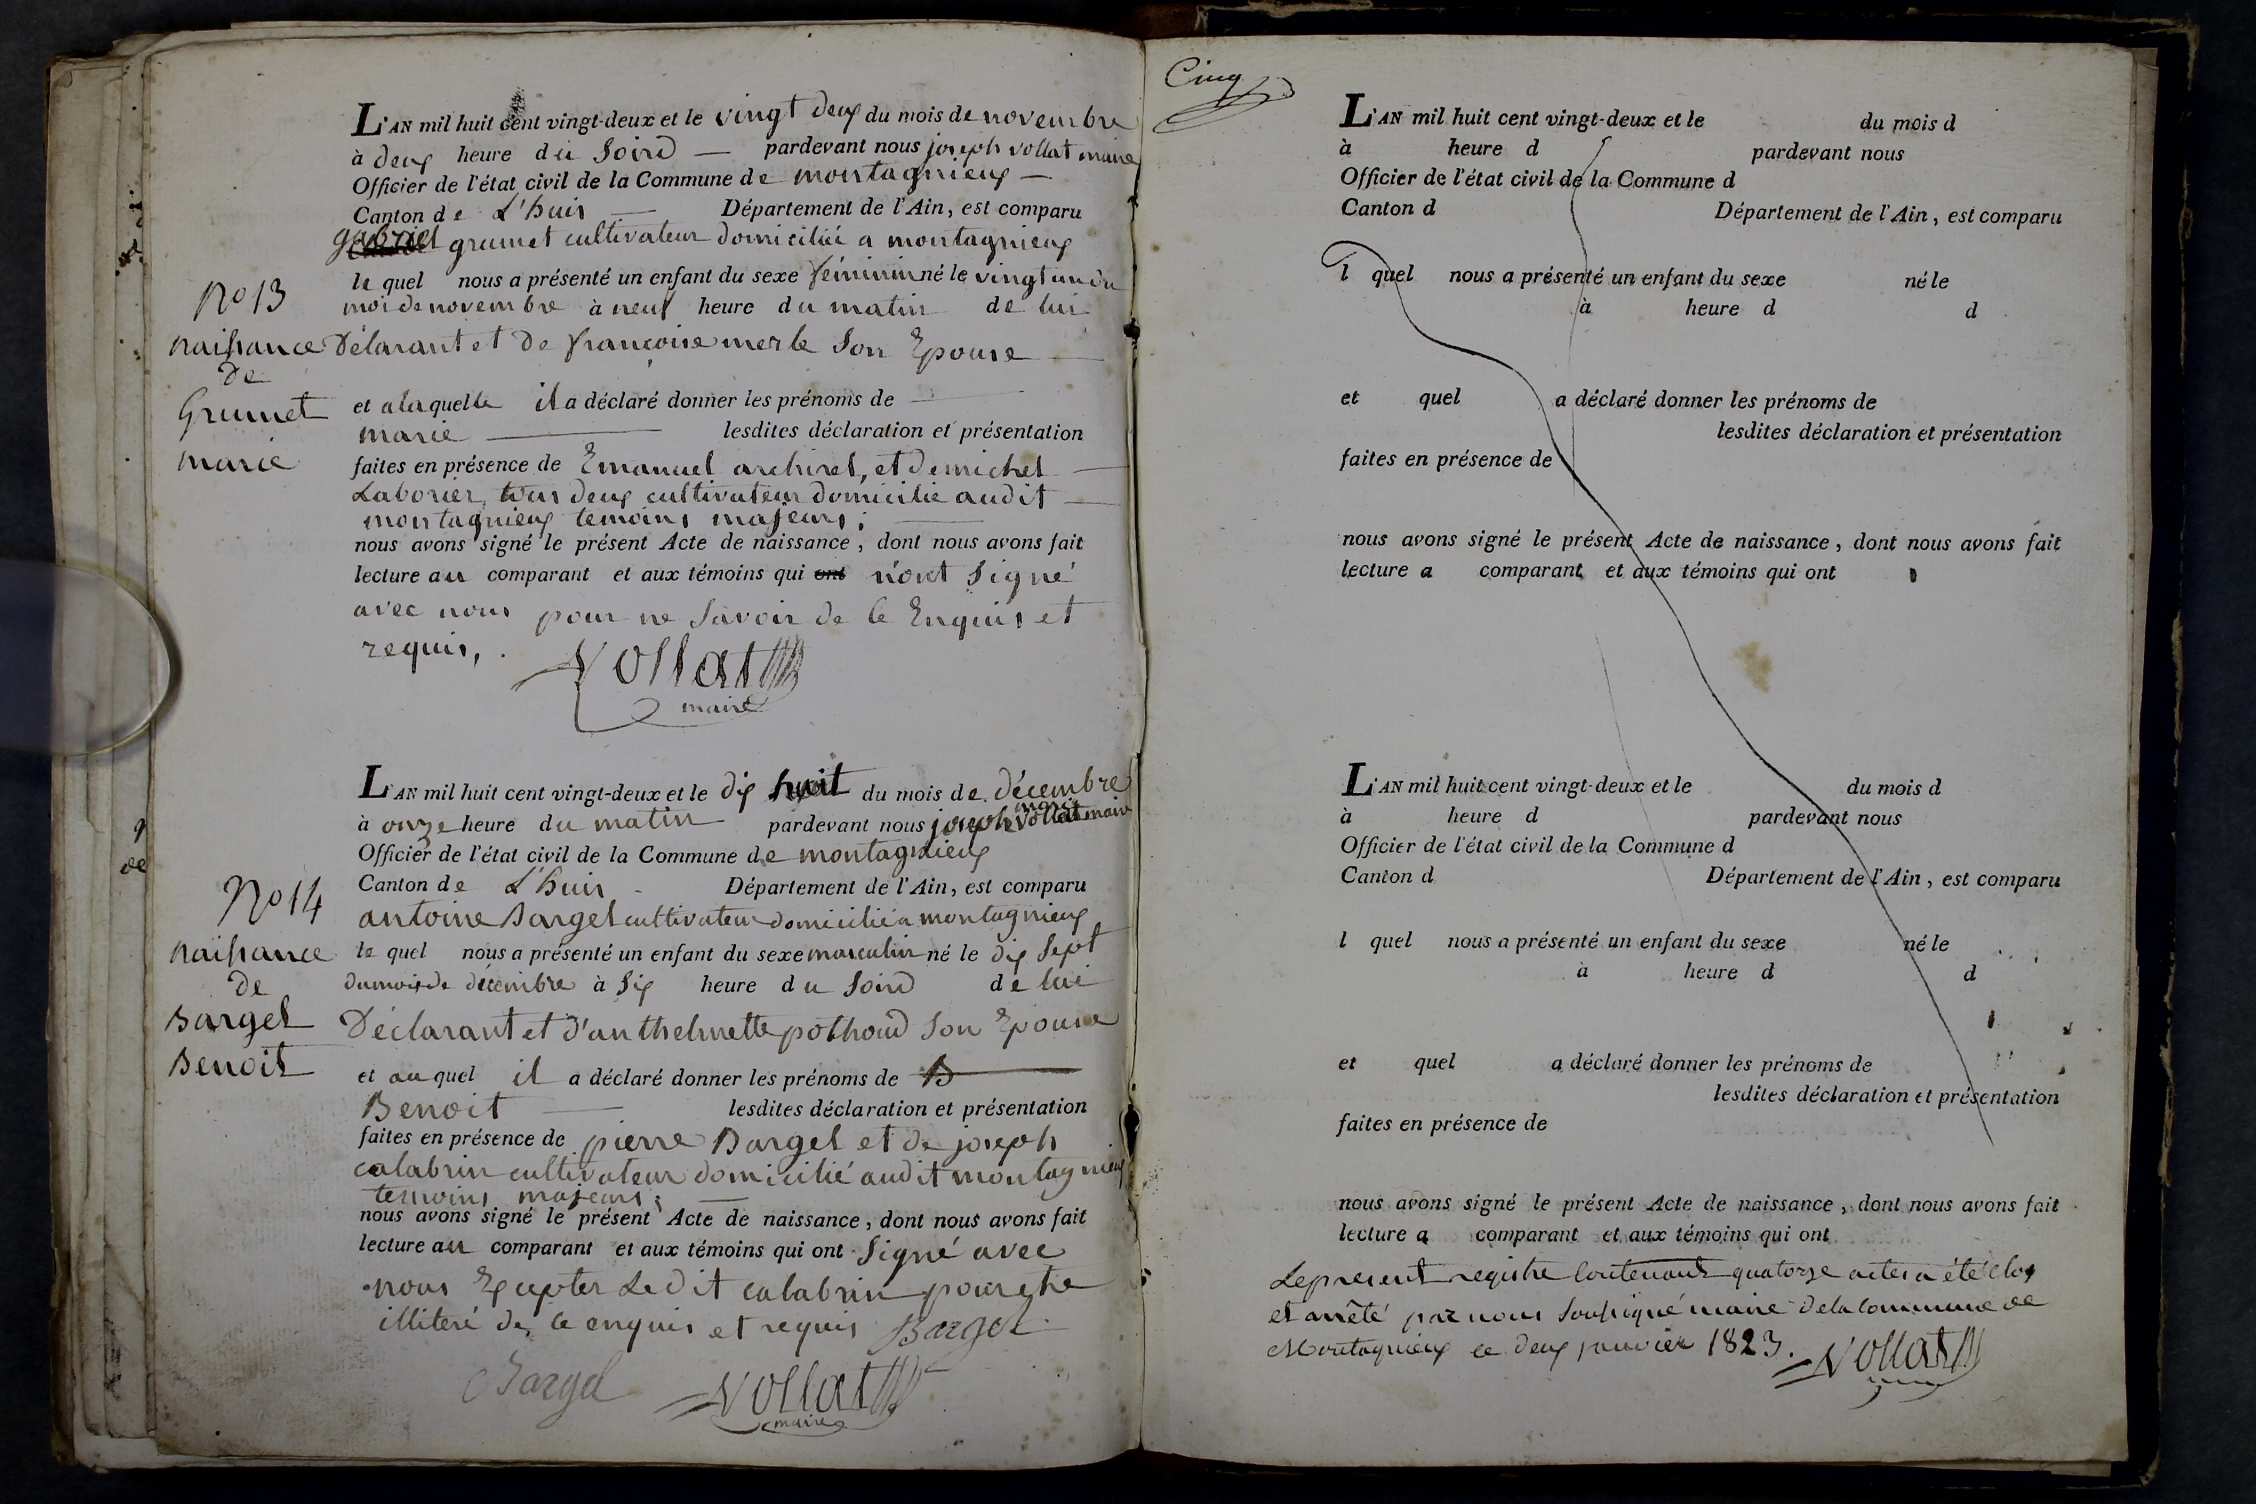 L'AN mil huit cent vingt-deux et le vingt deux du mois de novembre
à deux heure du Soird — pardevant nous joseph vollat maire
Officier de l'état civil de la Commune de montagnieux —
Canton de L'huis — Département de l'Ain, est comparu
gabriel grumet cultivateur domicilié a montagnieux
le quel nous a présenté un enfant du sexe féminin né le vingt un du
moi de novembre à neuf heure du matin de lui
Délarant et de françoise merle Son Epouse —
et a laquelle il a déclaré donner les prénoms de —
marie — lesdites déclaration et présentation
faites en présence de Emanuel archirel, et de michel —
Laborier, tous deux cultivateur domicilie audit —
montagnieux temoins majeurs; —
nous avons signé le présent Acte de naissance, dont nous avons fait
lecture au comparant et aux témoins qui ont n'ont Signé
avec nous pour ne Savoir de ce Enquis et
requis, .
Vollat
maire
No 13
naissance
de
Grumet
marie
L'AN mil huit cent vingt-deux et le dix huit du mois de décembre
à onze heure du matin pardevant nous joseph marie vollat maire
Officier de l'état civil de la Commune de montagnieux
Canton de L'huis - Département de l'Ain, est comparu
antoine Bargel cultivateur domicilié a montagnieux
le quel nous a présenté un enfant du sexe masculin né le dix Sept
du mois de décembre à Six heure du Soird de lui
Déclarant et d'anthelmette pothoud Son Epouse
et au quel il a déclaré donner les prénoms de B
Benoit — lesdites déclaration et présentation
faites en présence de pierre Bargel et de joseph
calabrin cultivateur domicilié audit montagnieux
temoins majeurs; —
nous avons signé le présent Acte de naissance, dont nous avons fait
lecture au comparant et aux témoins qui ont Signé avec
nous Excepter Le dit calabrin pour etre
illiteré de ce enquis et requis Bargel
Bargel Vollat
maire
No 14
naissance
de
Bargel
Benoit
Cinq
L'AN mil huit cent vingt-deux et le du mois d
à heure d pardevant nous
Officier de l'état civil de la Commune d
Canton d Département de l'Ain, est comparu
l quel nous a présenté un enfant du sexe né le
à heure d d
et quel a déclaré donner les prénoms de
lesdites déclaration et présentation
faites en présence de
nous avons signé le présent Acte de naissance, dont nous avons fait
lecture a comparant et aux témoins qui ont
L'AN mil huit cent vingt-deux et le du mois d
à heure d pardevant nous
Officier de l'état civil de la Commune d
Canton d Département de l'Ain, est comparu
l quel nous a présenté un enfant du sexe né le
à heure d d
et quel a déclaré donner les prénoms de
lesdites déclaration et présentation
faites en présence de
nous avons signé le présent Acte de naissance, dont nous avons fait
lecture a comparant et aux témoins qui ont
Le present registre Contenant quatorze actes a été clos
et arrêté par nous Soussigné maire de la Commune de
Montagnieux ce deux janvier 1823. Vollat